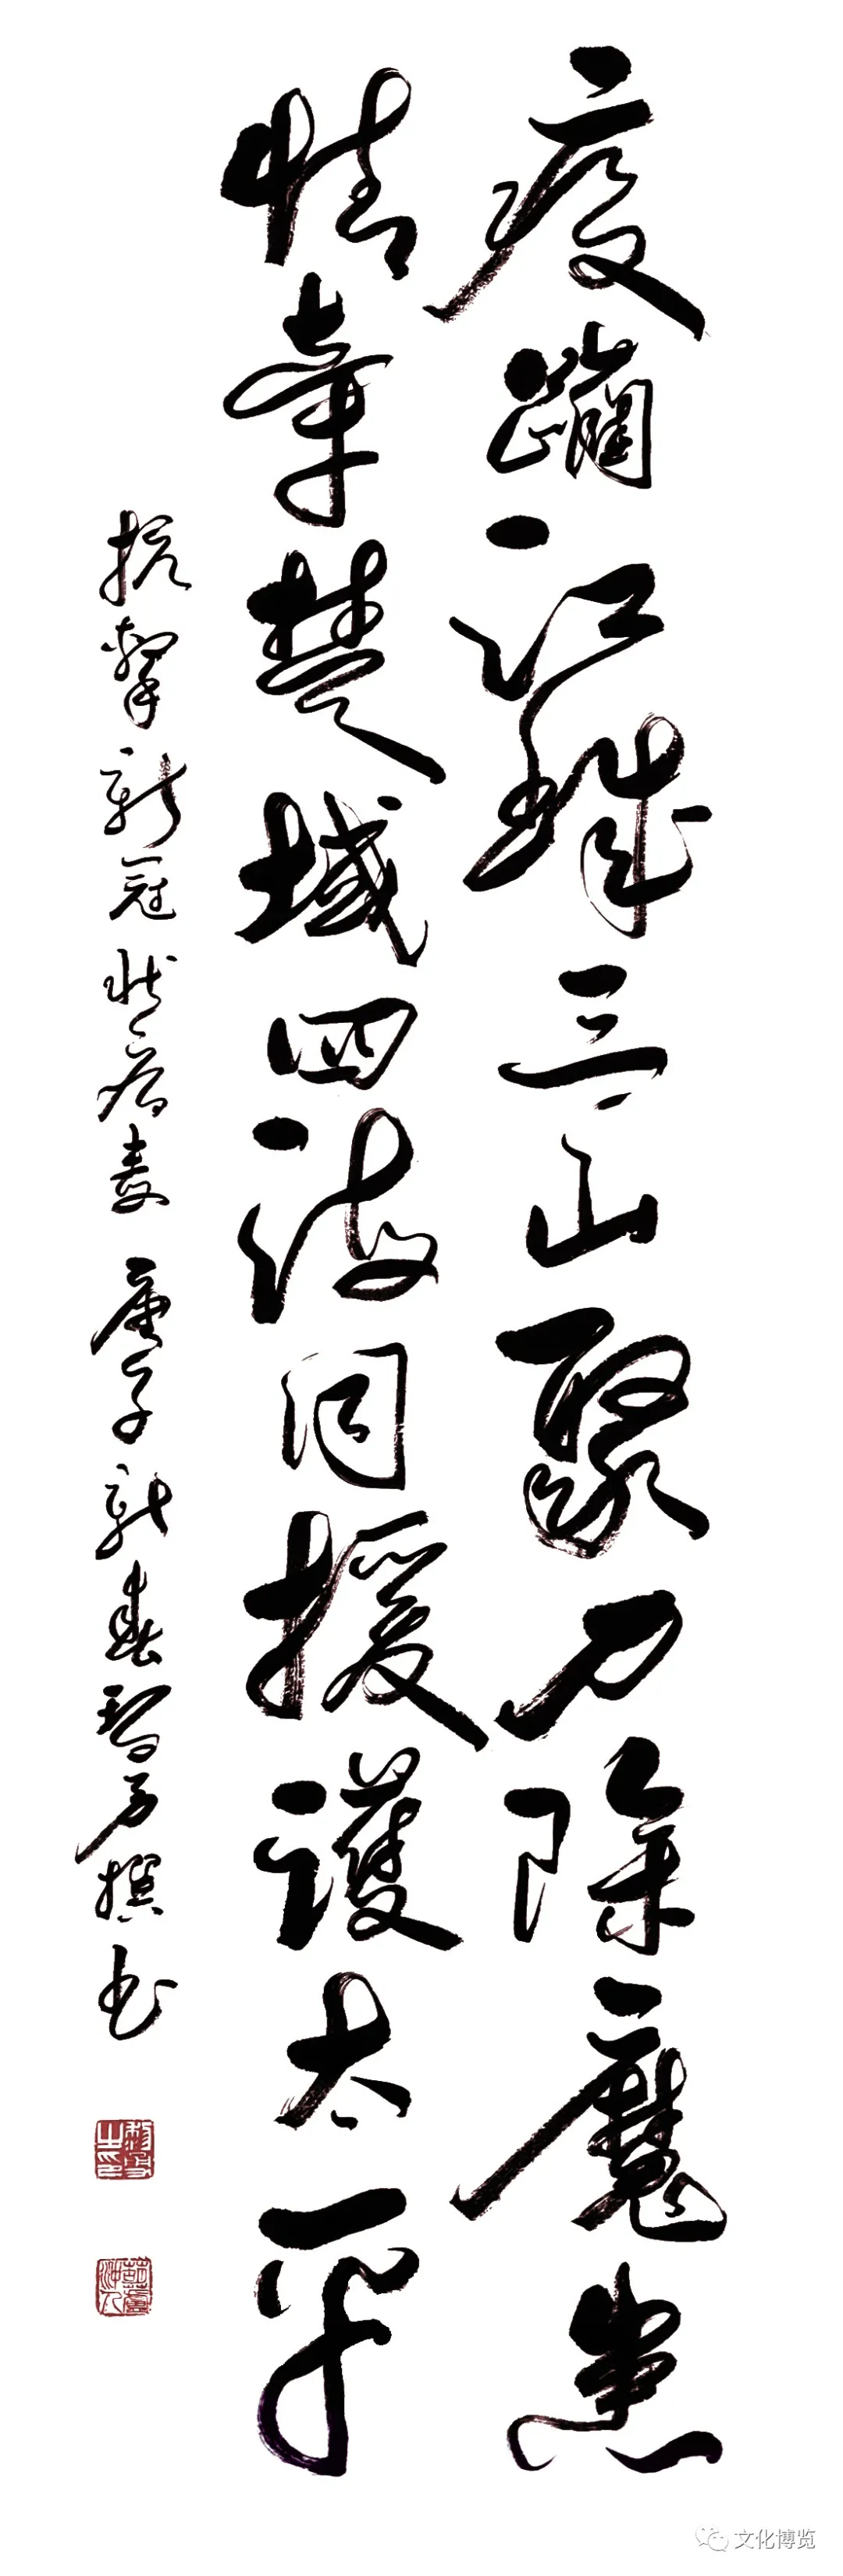 疫躪江城三山聚力除魔患
情牵楚域四海同援護太平
抗擊新冠状病毒 庚子新春撰书
文化博览